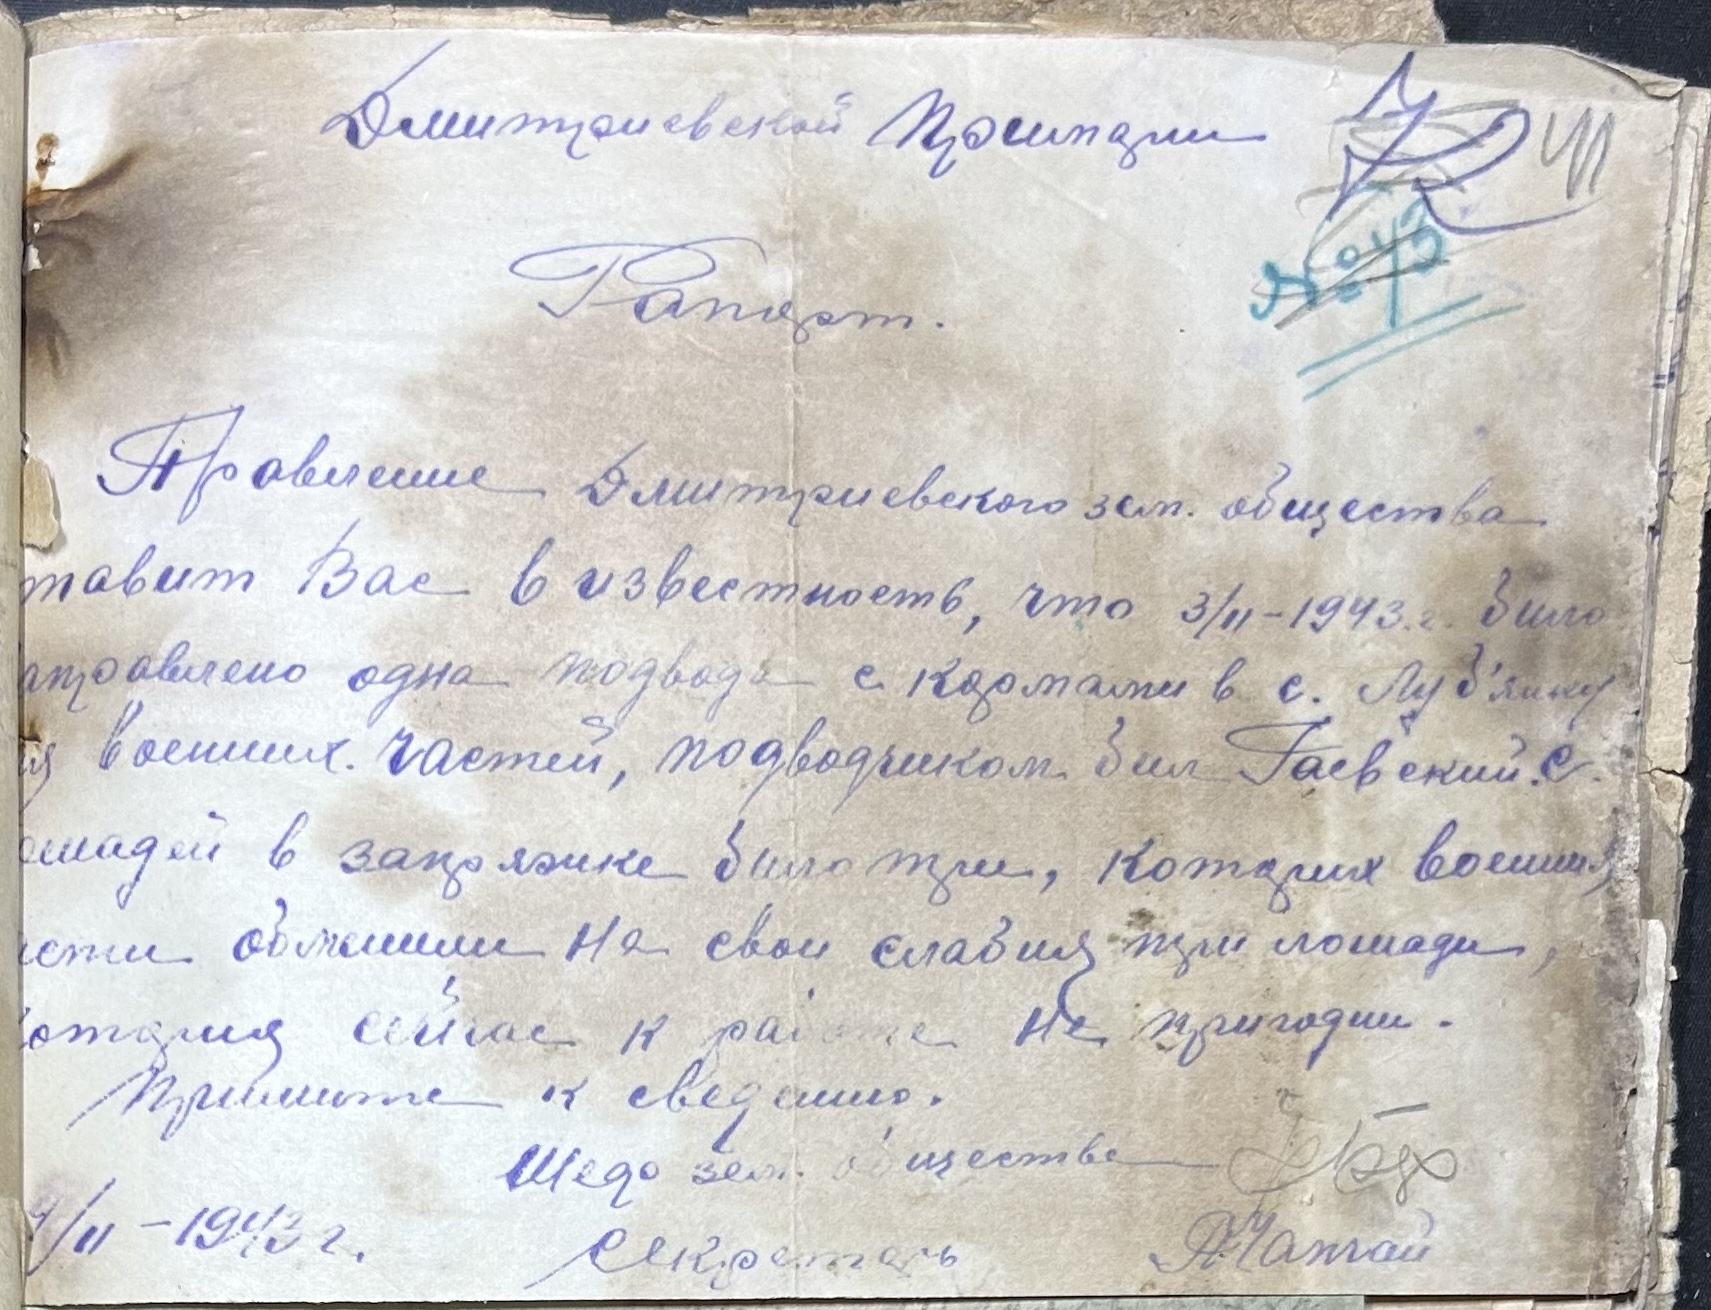 Дмитриевской Примарии
72 41
№ 43
Рапорт.
Правление Дмитриевского зем. общества
тавит Вас в известность, что 3/II-1943.г. било
аправлено одна подвода с кормами в с. Луб'янку
ля военних. частей, подводчиком бил Гаевский. С.
ошадей в запряжке било три, которих военния
асти обменили на свои слабия три лошади,
котория сейчас к работе не пригодни.
Примите к сведению.
Шедо зем. общества
4/II-1943 г. Секретарь